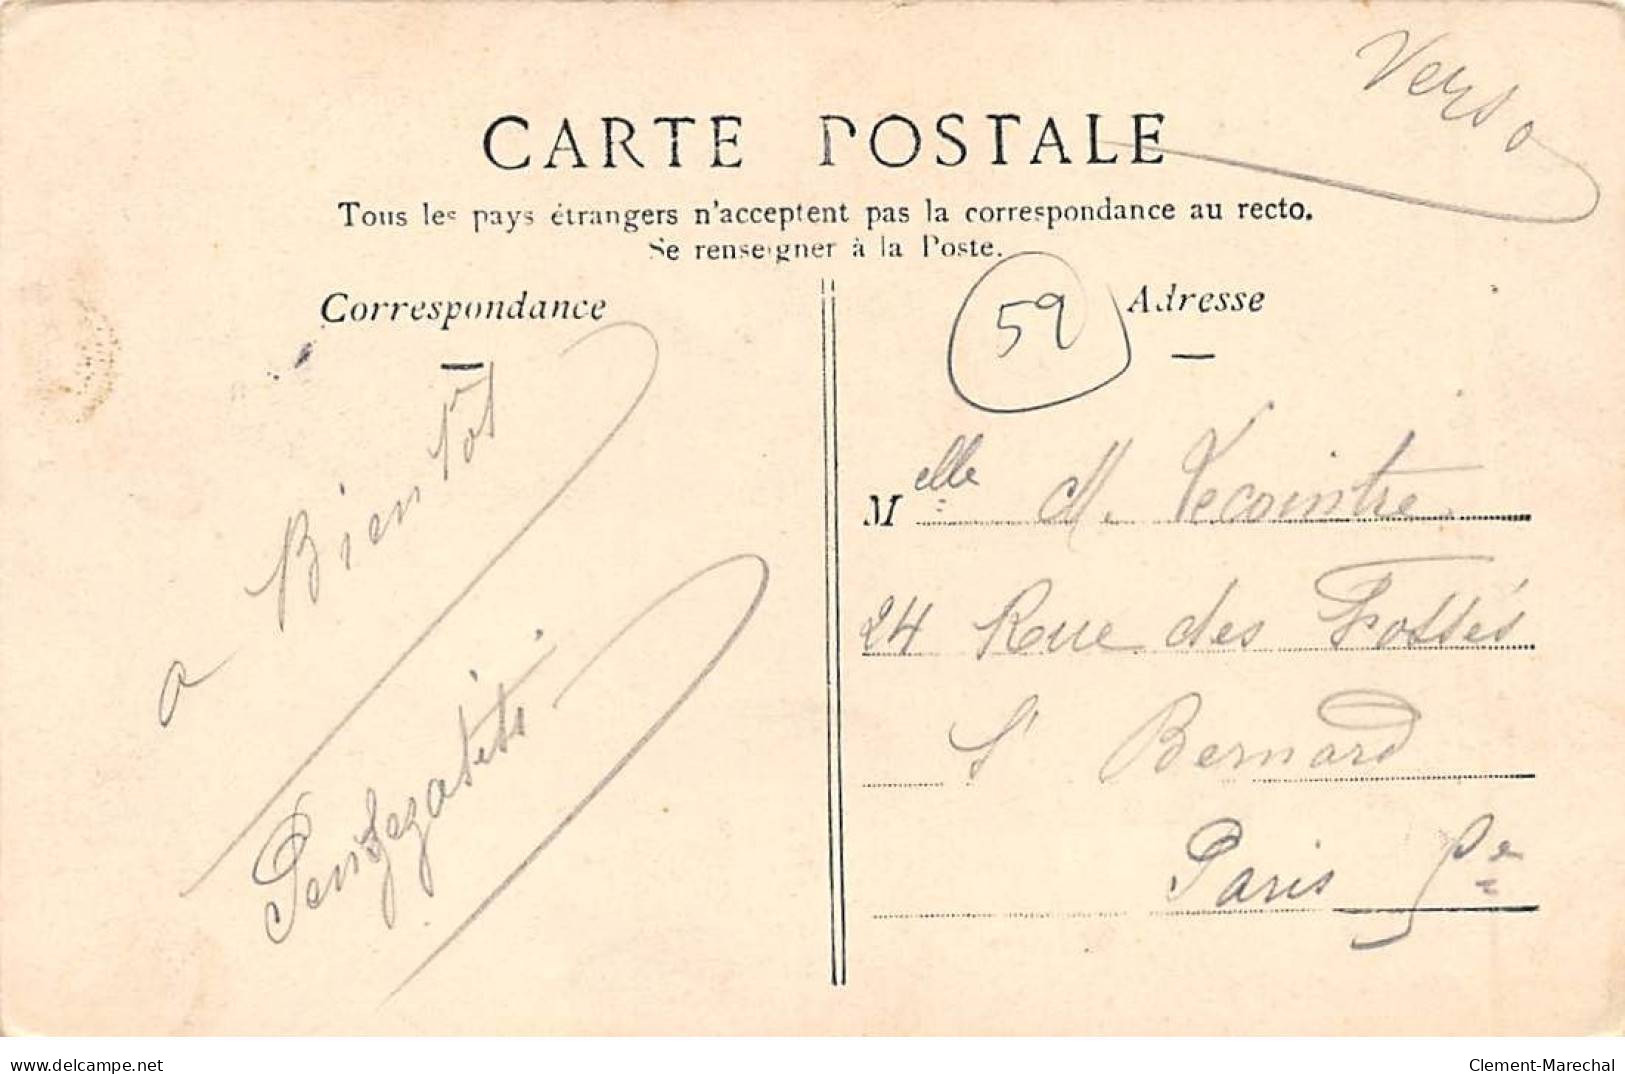 Verso
CARTE POSTALE
Tous les pays étrangers n'acceptent pas la correspondance au recto.
Se renseigner à la Poste.
Correspondance
Adresse
59
a Bientot
Melle M. Lecointre
24 Rue des Fossés
St Bernard
Paris 5e
delcampe.net
Clement-Marechal